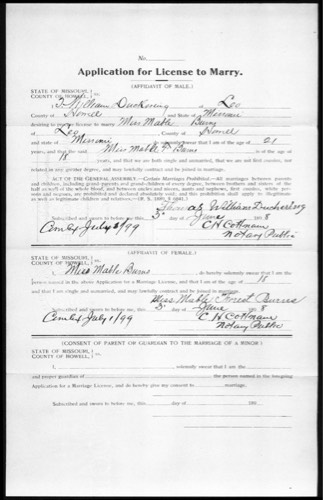 No.
Application for License to Marry.
(AFFIDAVIT OF MALE.)
STATE OF MISSOURI,
COUNTY OF HOWELL,
I, William of
County of Howell and State of Missouri
desiring to procure license to marry Miss Mable Burns
of County of Howell
Missouri that I am of the age of 21
years, and that the said Miss Mable F. Burns is of the age of
18 years, and that we are both single and unmarried, that we are not first cousins, nor
related in any greater degree, and may lawfully contract and be joined in marriage.
ACT OF THE GENERAL ASSEMBLY.—Certain Marriages Prohibited.—All marriages between parents
and children, including grand parents and grand-children of every degree, between brothers and sisters of the
half as well as the whole blood, and between uncles and nieces, aunts and nephews, first cousins, white persons
and negroes, are prohibited and declared absolutely void; and this prohibition shall apply to illegitimate
as well as legitimate children and relatives.
William
Subscribed and sworn to before me, this 3 day of June 8
C H Cottmann
Com Ex July 1/99 Notary Public
(AFFIDAVIT OF FEMALE.)
STATE OF MISSOURI,
COUNTY OF HOWELL,
I, Miss Mable Burns, do hereby solemnly swear that I am the
person named in the above Application for a Marriage License, that I am of the age of 18
and that I am single and unmarried, and may lawfully contract and be joined in marriage.
Miss Mable Forest Burns
Subscribed and sworn to before me, this 3 day of June 8
C H Cottmann
Com Ex July 1/99 Notary Public
(CONSENT OF PARENT OR GUARDIAN TO THE MARRIAGE OF A MINOR)
STATE OF MISSOURI,
COUNTY OF HOWELL,
I, solemnly swear that I am the
and proper guardian of the person named in the foregoing
Application for a Marriage License, and do hereby give my consent to marriage.
Subscribed and sworn to before me, this day of